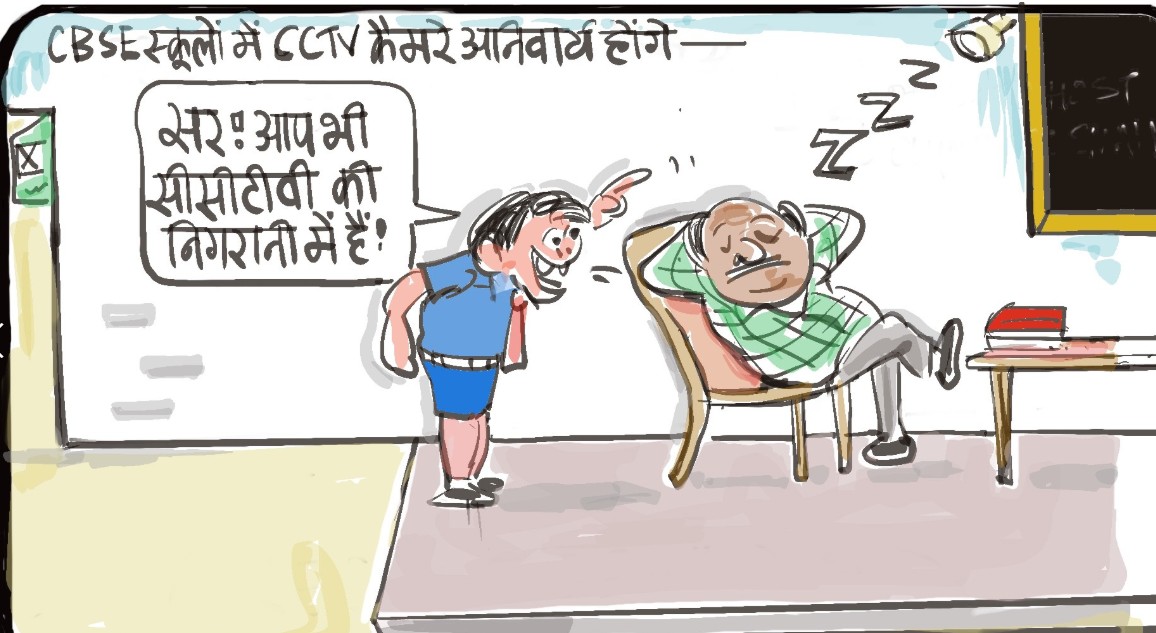 CBSE स्कूलों में CCTV कैमरे अनिवार्य होंगे —
सर! आप भी
सीसीटीवी की
निगरानी में हैं!
Z Z Z